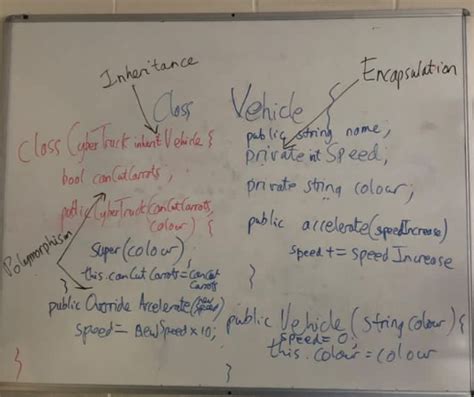 Inheritance
Encapsulation
Class Vehicle {
public string name,
private int Speed,
private string colour;
public accelerate(speedIncrease)
speed += speed Increase
}
public Vehicle (string colour) {
speed = 0;
this.colour = colour
}
class CyberTruck inherit Vehicle {
bool canCutCarrots;
public CyberTruck(canCutCarrots,
colour) {
Polymorphism
Super(colour);
this.canCutCarrots = canCut
Carrots
}
public Override Accelerate(new
speed)
speed = newSpeed x 10;
}